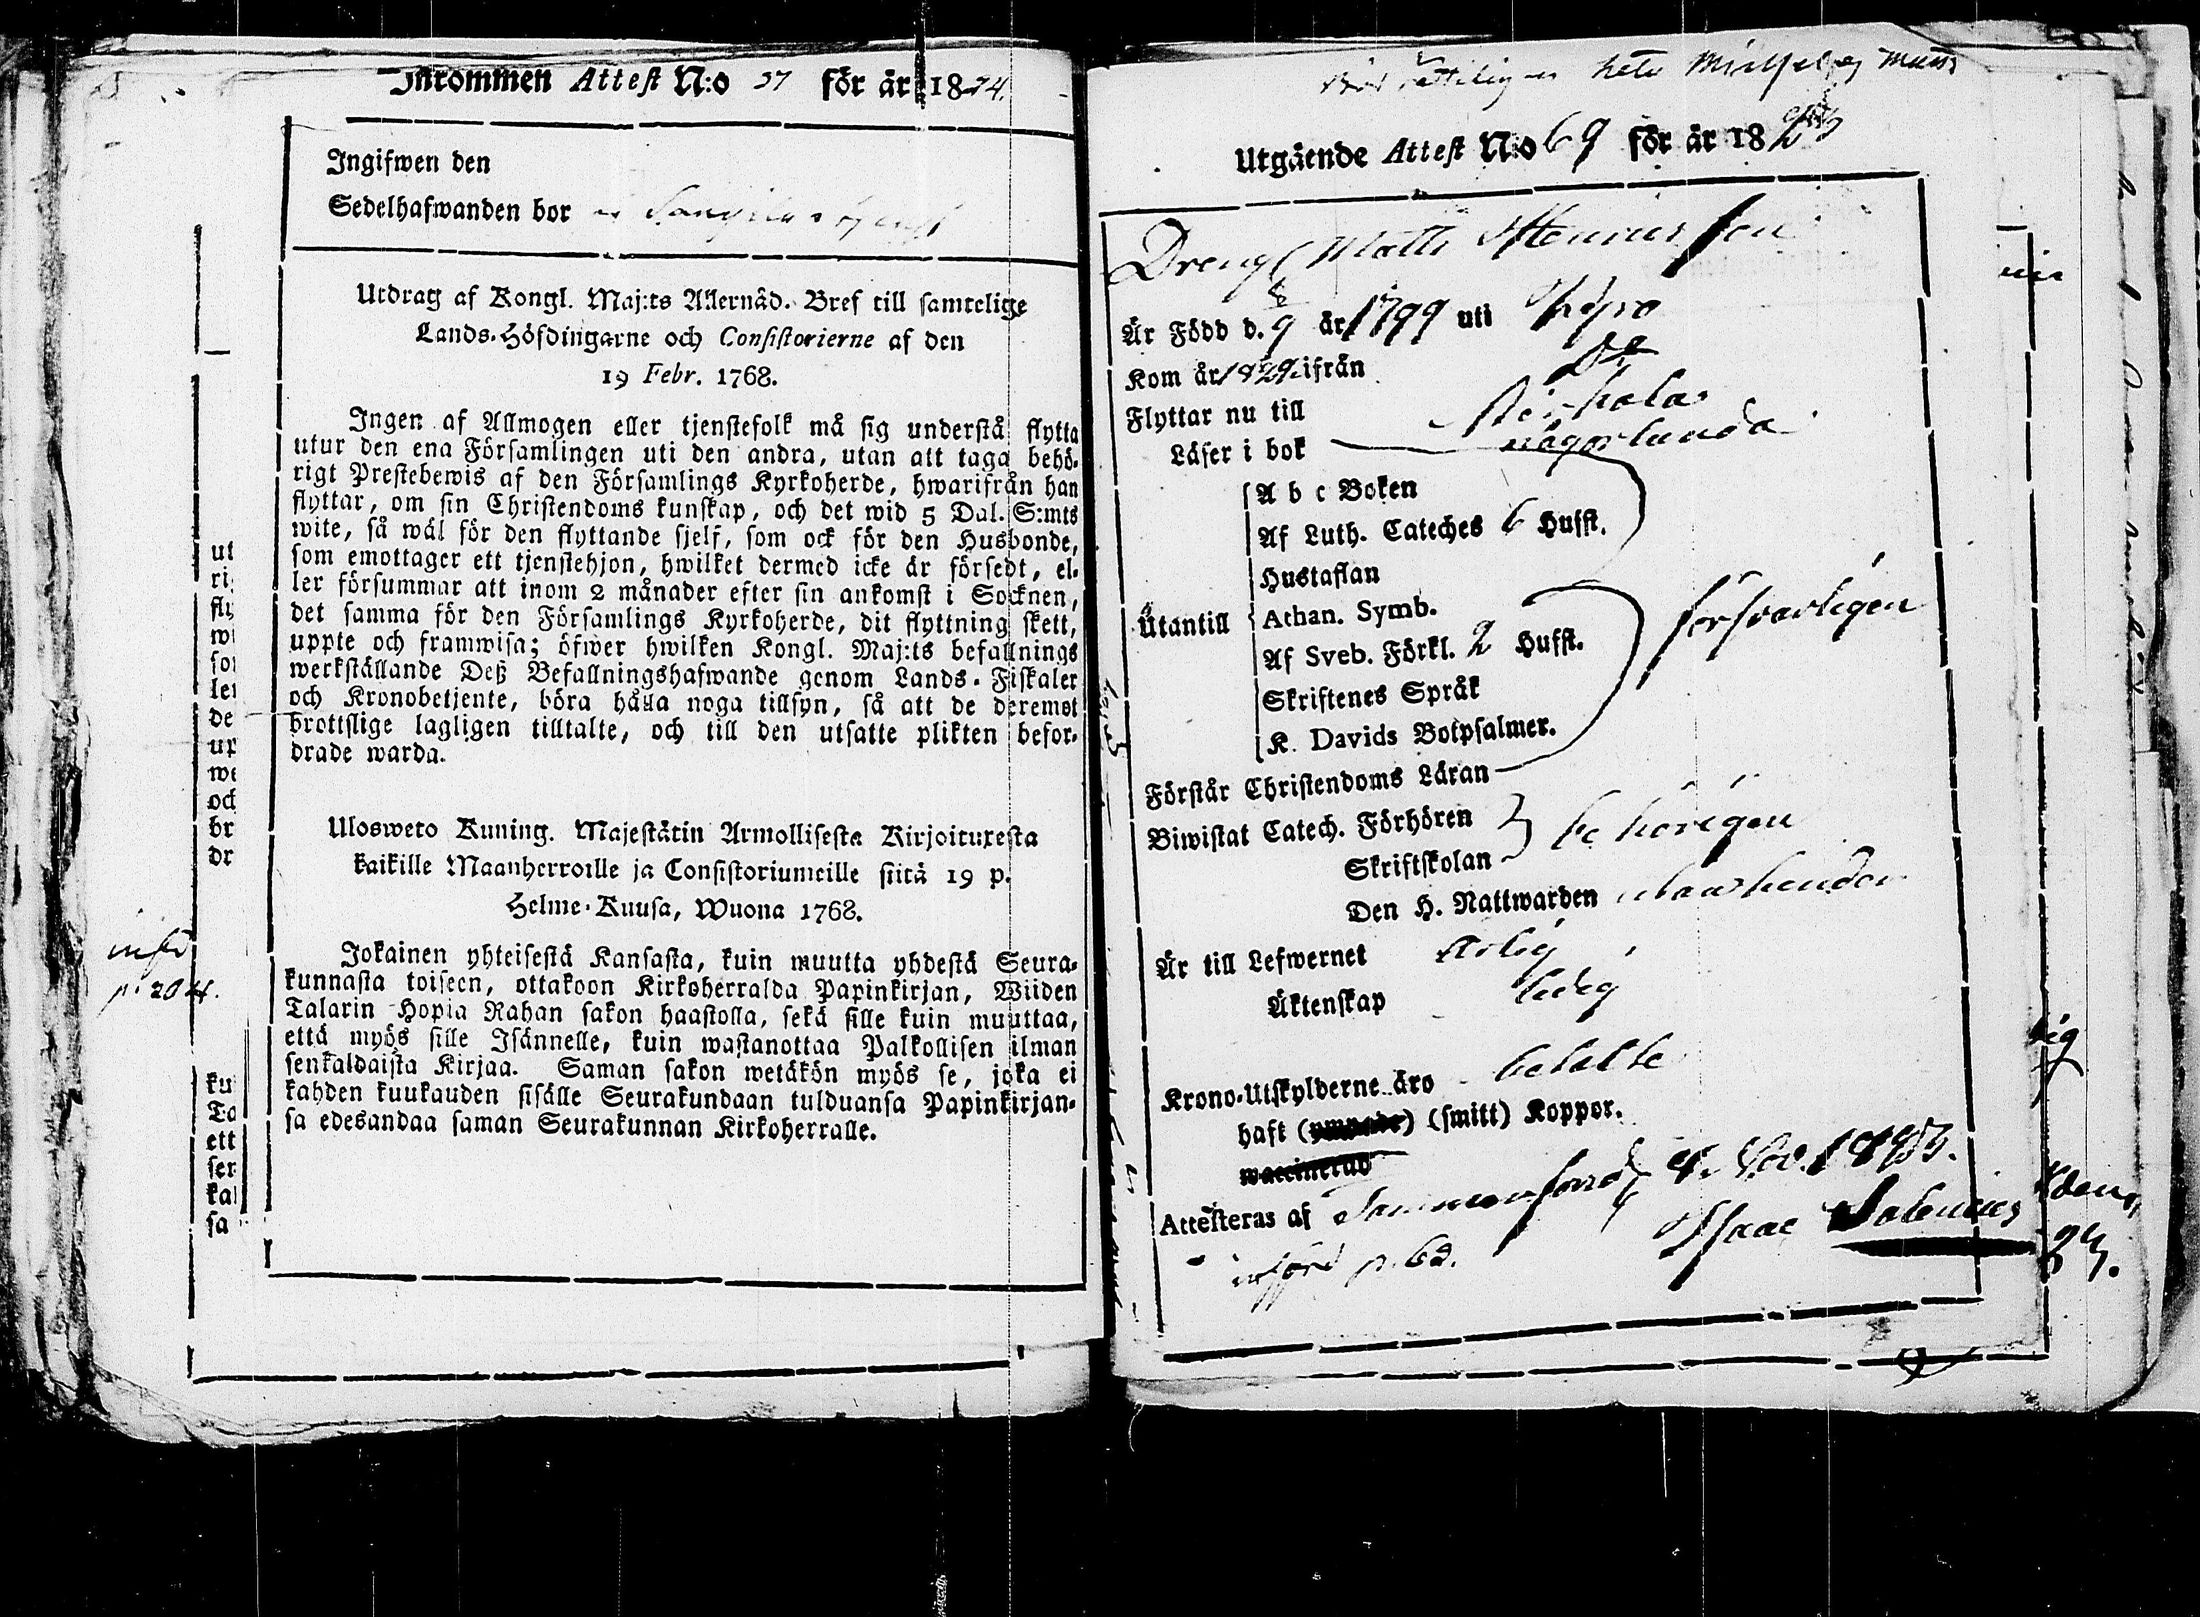 Inkommen Attest N:o 27 för år 1824.
Ingifwen den
Sedelhafwanden bor
Utdrag af Kongl. Maj:ts Allernåd. Bref till samtelige
Lands-Höfdingarne och Consistorierne af den
19 Febr. 1768.
Ingen af Allmogen eller tjenstefolk må sig understå flytta
utur den ena Församlingen uti den andra, utan att taga behö-
rigt Prestebewis af den Församlings Kyrkoherde, hwarifrån han
flyttar, om sin Christendoms kunskap, och det wid 5 Dal. S:mts
wite, så wäl för den flyttande sjelf, som ock för den Husbonde,
som emottager ett tjenstehjon, hwilket dermed icke är försedt, el-
ler försummar att inom 2 månader efter sin ankomst i Socknen,
det samma för den Församlings Kyrkoherde, dit flyttning skett,
uppte och framwisa; öfwer hwilken Kongl. Maj:ts befallnings
werkställande Deß Befallningshafwande genom Lands-Fiskaler
och Kronobetjente, böra hålla noga tillsyn, så att de deremot
brottslige lagligen tilltalte, och till den utsatte plikten befor-
drade warda.
Ulosweto Kuning. Majestätin Armollisesta Kirjoituxesta
kaikille Maanherroille ja Consistoriumeille siitä 19 p.
Helme-Kuusa, Wuona 1768.
Jokainen yhteisestä Kansasta, kuin muutta yhdestä Seura-
kunnasta toiseen, ottakoon Kirkoherralda Papinkirjan, Wiiden
Talarin Hopia Rahan sakon haastolla, sekä sille kuin muuttaa,
että myös sille Isännelle, kuin wastanottaa Palkollisen ilman
senkaldaista Kirjaa. Saman sakon wetäkön myös se, joka ei
kahden kuukauden sisälle Seurakundaan tulduansa Papinkirjan-
sa edesandaa saman Seurakunnan Kirkoherralle.
införd
p. 204.
ut
ri
fly
wi
so
le
de
up
we
och
br
dr
ku
Ta
ett
sen
ka
sa
heta
Utgående Attest N:o 69 för år 1823
Dreng Matts Henricsson
Är Född d. 9 år 1799 uti Kyro
Kom år ifrån D:o
Flyttar nu till Birkala
Läser i bok någorlunda
A b c Boken
Af Luth. Cateches 6 Hufst.
Hustaflan
Utantill Athan. Symb. försvarligen
Af Sveb. Förkl. 2 Hufst.
Skriftenes Språk
K. Davids Botpsalmer.
Förstår Christendoms Läran
Biwistat Catech. Förhören behörigen
Skriftskolan
Den H. Nattwarden
Är till Lefwernet ärlig
Äktenskap ledig
Krono-Utskylderne äro betalte
haft (ympade) (smitt) Koppor.
waccinerad
Attesteras af Tammerfors d. 4. Nov. 1823.
Isaac Salenius
införd p. 62.